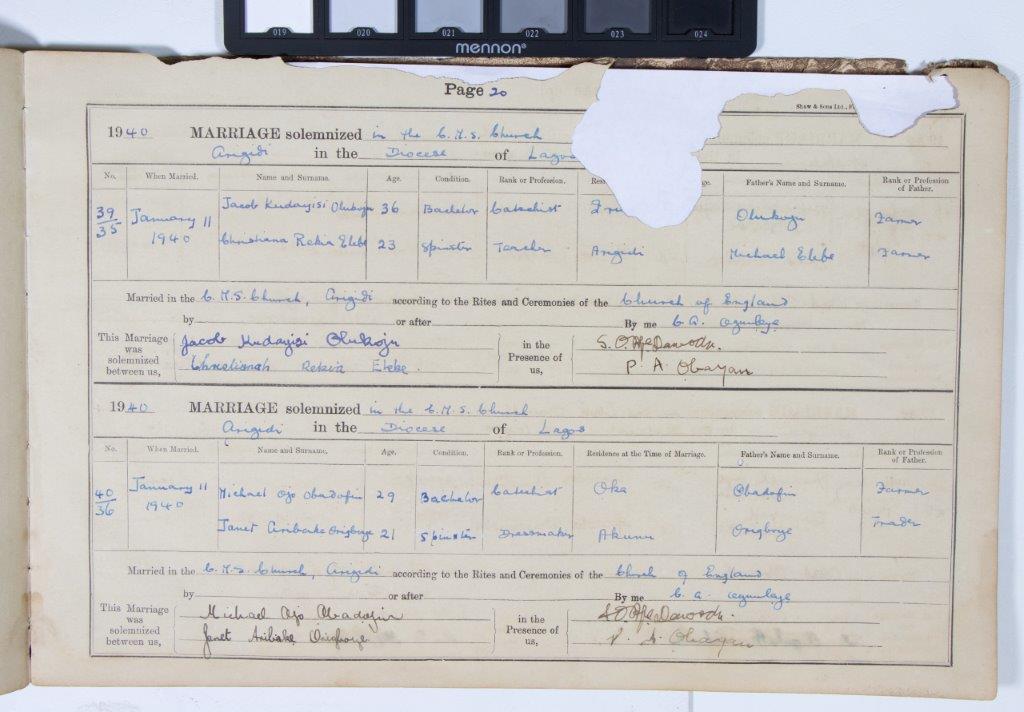 019 020 021 022 023 024
mennon®
Page 20
Shaw & Sons Ltd., F
1940 MARRIAGE solemnized in the C.M.S. Church
Arigidi in the Diocese of Lagos
No. When Married. Name and Surname. Age. Condition. Rank or Profession. Father's Name and Surname. Rank or Profession of Father.
39/35 January 11 1940 Jacob Kudayisi Olukoju 36 Bachelor Catechist Olukoju Farmer
Christiana Rekia Elebe 23 Spinster Teacher Arigidi Michael Elebe Farmer
Married in the C.M.S. Church, Arigidi according to the Rites and Ceremonies of the Church of England
by or after By me C.A. Ogunbiye
This Marriage was solemnized between us, Jacob Kudayisi Olukoju in the Presence of us, S. Dawodu.
Christianah Rekia Elebe. P. A. Obayan
1940 MARRIAGE solemnized in the C.M.S. Church
Arigidi in the Diocese of Lagos
No. When Married. Name and Surname. Age. Condition. Rank or Profession. Residence at the Time of Marriage. Father's Name and Surname. Rank or Profession of Father.
40/36 January 11 1940 Michael Ojo Obadofin 29 Bachelor Catechist Oka Obadofin Farmer
Janet Aribake Origboye 21 Spinster Dressmaker Akunu Origboye Trader
Married in the C.M.S. Church, Arigidi according to the Rites and Ceremonies of the Church of England
by or after By me C.A. Ogunbiye
This Marriage was solemnized between us, Michael Ojo Obadofin in the Presence of us, Dawodu.
Janet Aribake Origboye P. A. Obayan